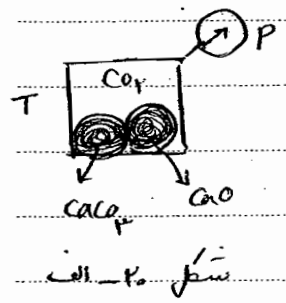 P
CO۲
T
CaCO۳ CaO
شکل ۲۰ - الف